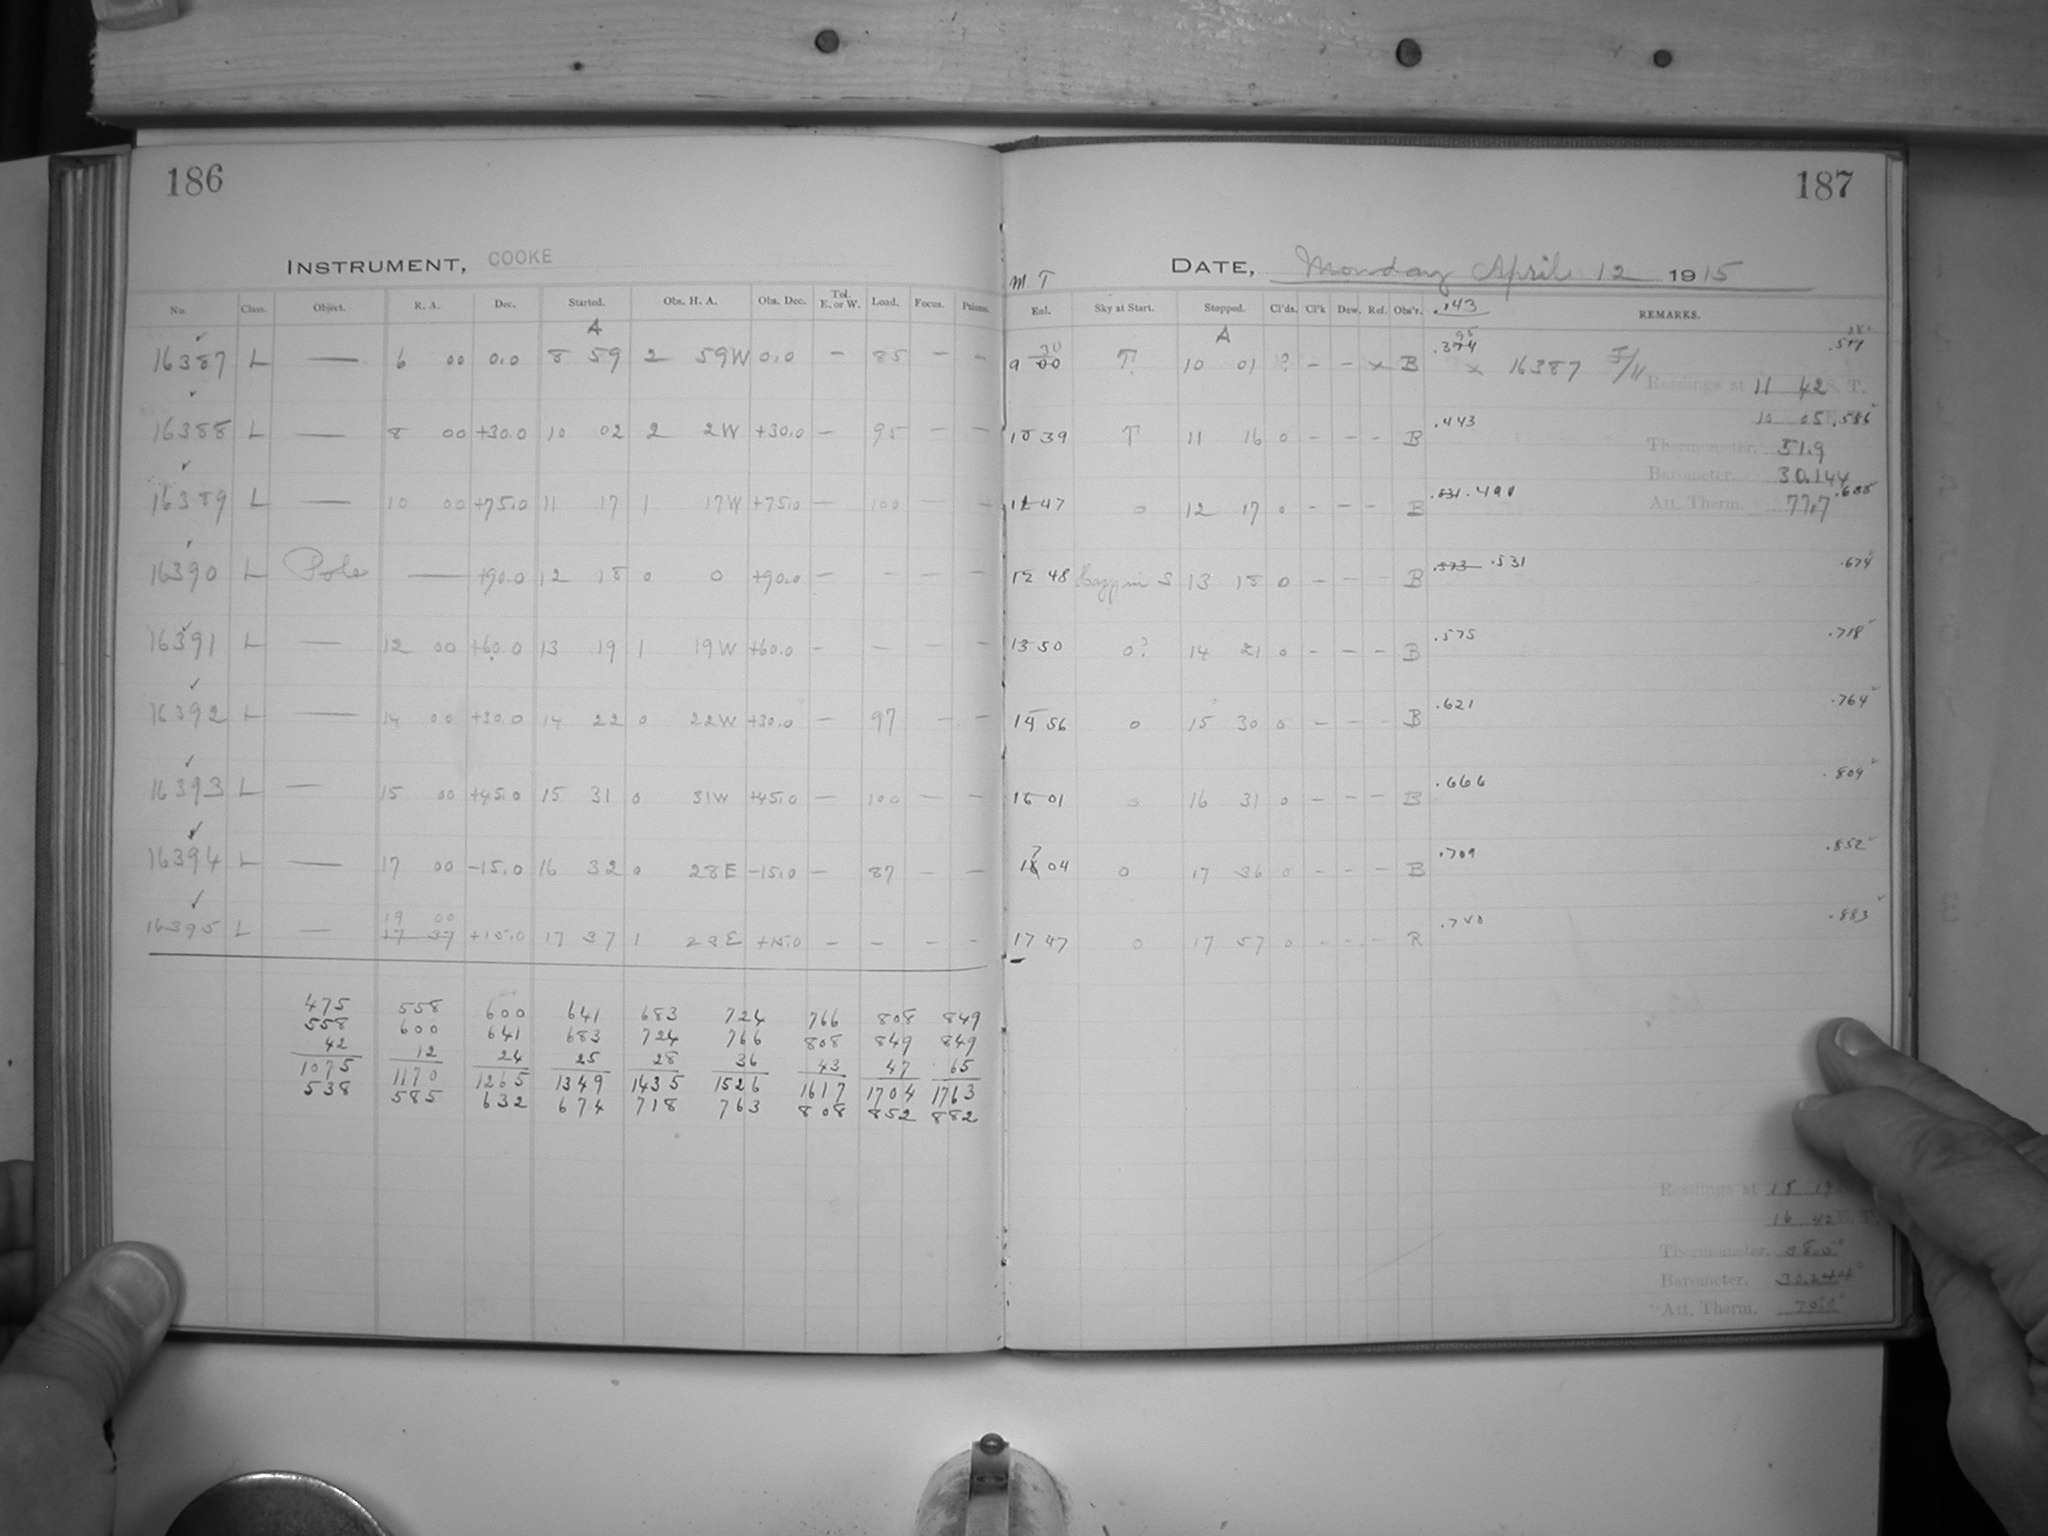 186
INSTRUMENT, COOKE
No. Class. Object. R. A. Dec. Started. Obs. H. A. Obs. Dec. Tel. E. or W. Load. Focus.
A
16387 L — 6 00 0.0 8 59 2 59W 0.0 — 85 — —
16388 L — 8 00 +30.0 10 02 2 2W +30.0 — 95 — —
16389 L — 10 00 +75.0 11 17 1 17W +75.0 — 100 —
16390 L Pole — +90.0 12 18 0 0 +90.0 — — — —
16391 L — 12 00 +60.0 13 19 1 19W +60.0 — — — —
16392 L — 14 00 +30.0 14 22 0 22W +30.0 — 97 — —
16393 L — 15 00 +45.0 15 31 0 31W +45.0 — 100 — —
16394 L — 17 00 -15.0 16 32 0 28E -15.0 — 87 — —
19 00
16395 L — 17 37 +15.0 17 37 1 23E +15.0 — — — —
475 558 600 641 683 724 766 808 849
558 600 641 683 724 766 808 849 849
42 12 24 25 28 36 43 47 65
1075 1170 1265 1349 1435 1526 1617 1704 1763
538 585 632 674 718 763 808 852 882
187
M T
DATE, Monday April 12 1915
Enl. Sky at Start. Stopped. Cl'ds. Cl'k Dew. Ref. Obs'r. .143 REMARKS.
30 A 95
9 00 T 10 01 ? — — x B .374 x 16387 .517
Readings at 11 42 S. T.
10 05 .586
10 39 T 11 16 0 — — — B .443
Thermometer. 51.9
Barometer. 30.144
47 0 12 17 0 — — — B .490
Att. Therm. 77.7
12 48 Hazy in S 13 18 0 — — — B .531 .674
13 50 0? 14 21 0 — — — B .575 .718
14 56 0 15 30 0 — — — B .621 .764
16 01 0 16 31 0 — — — B .666 .809
7
04 0 17 36 0 — — — B .709 .852
17 47 0 17 57 0 — — — R .740 .883
Readings at
16 42 S. T.
Thermometer.
Barometer. 30.244
Att. Therm.